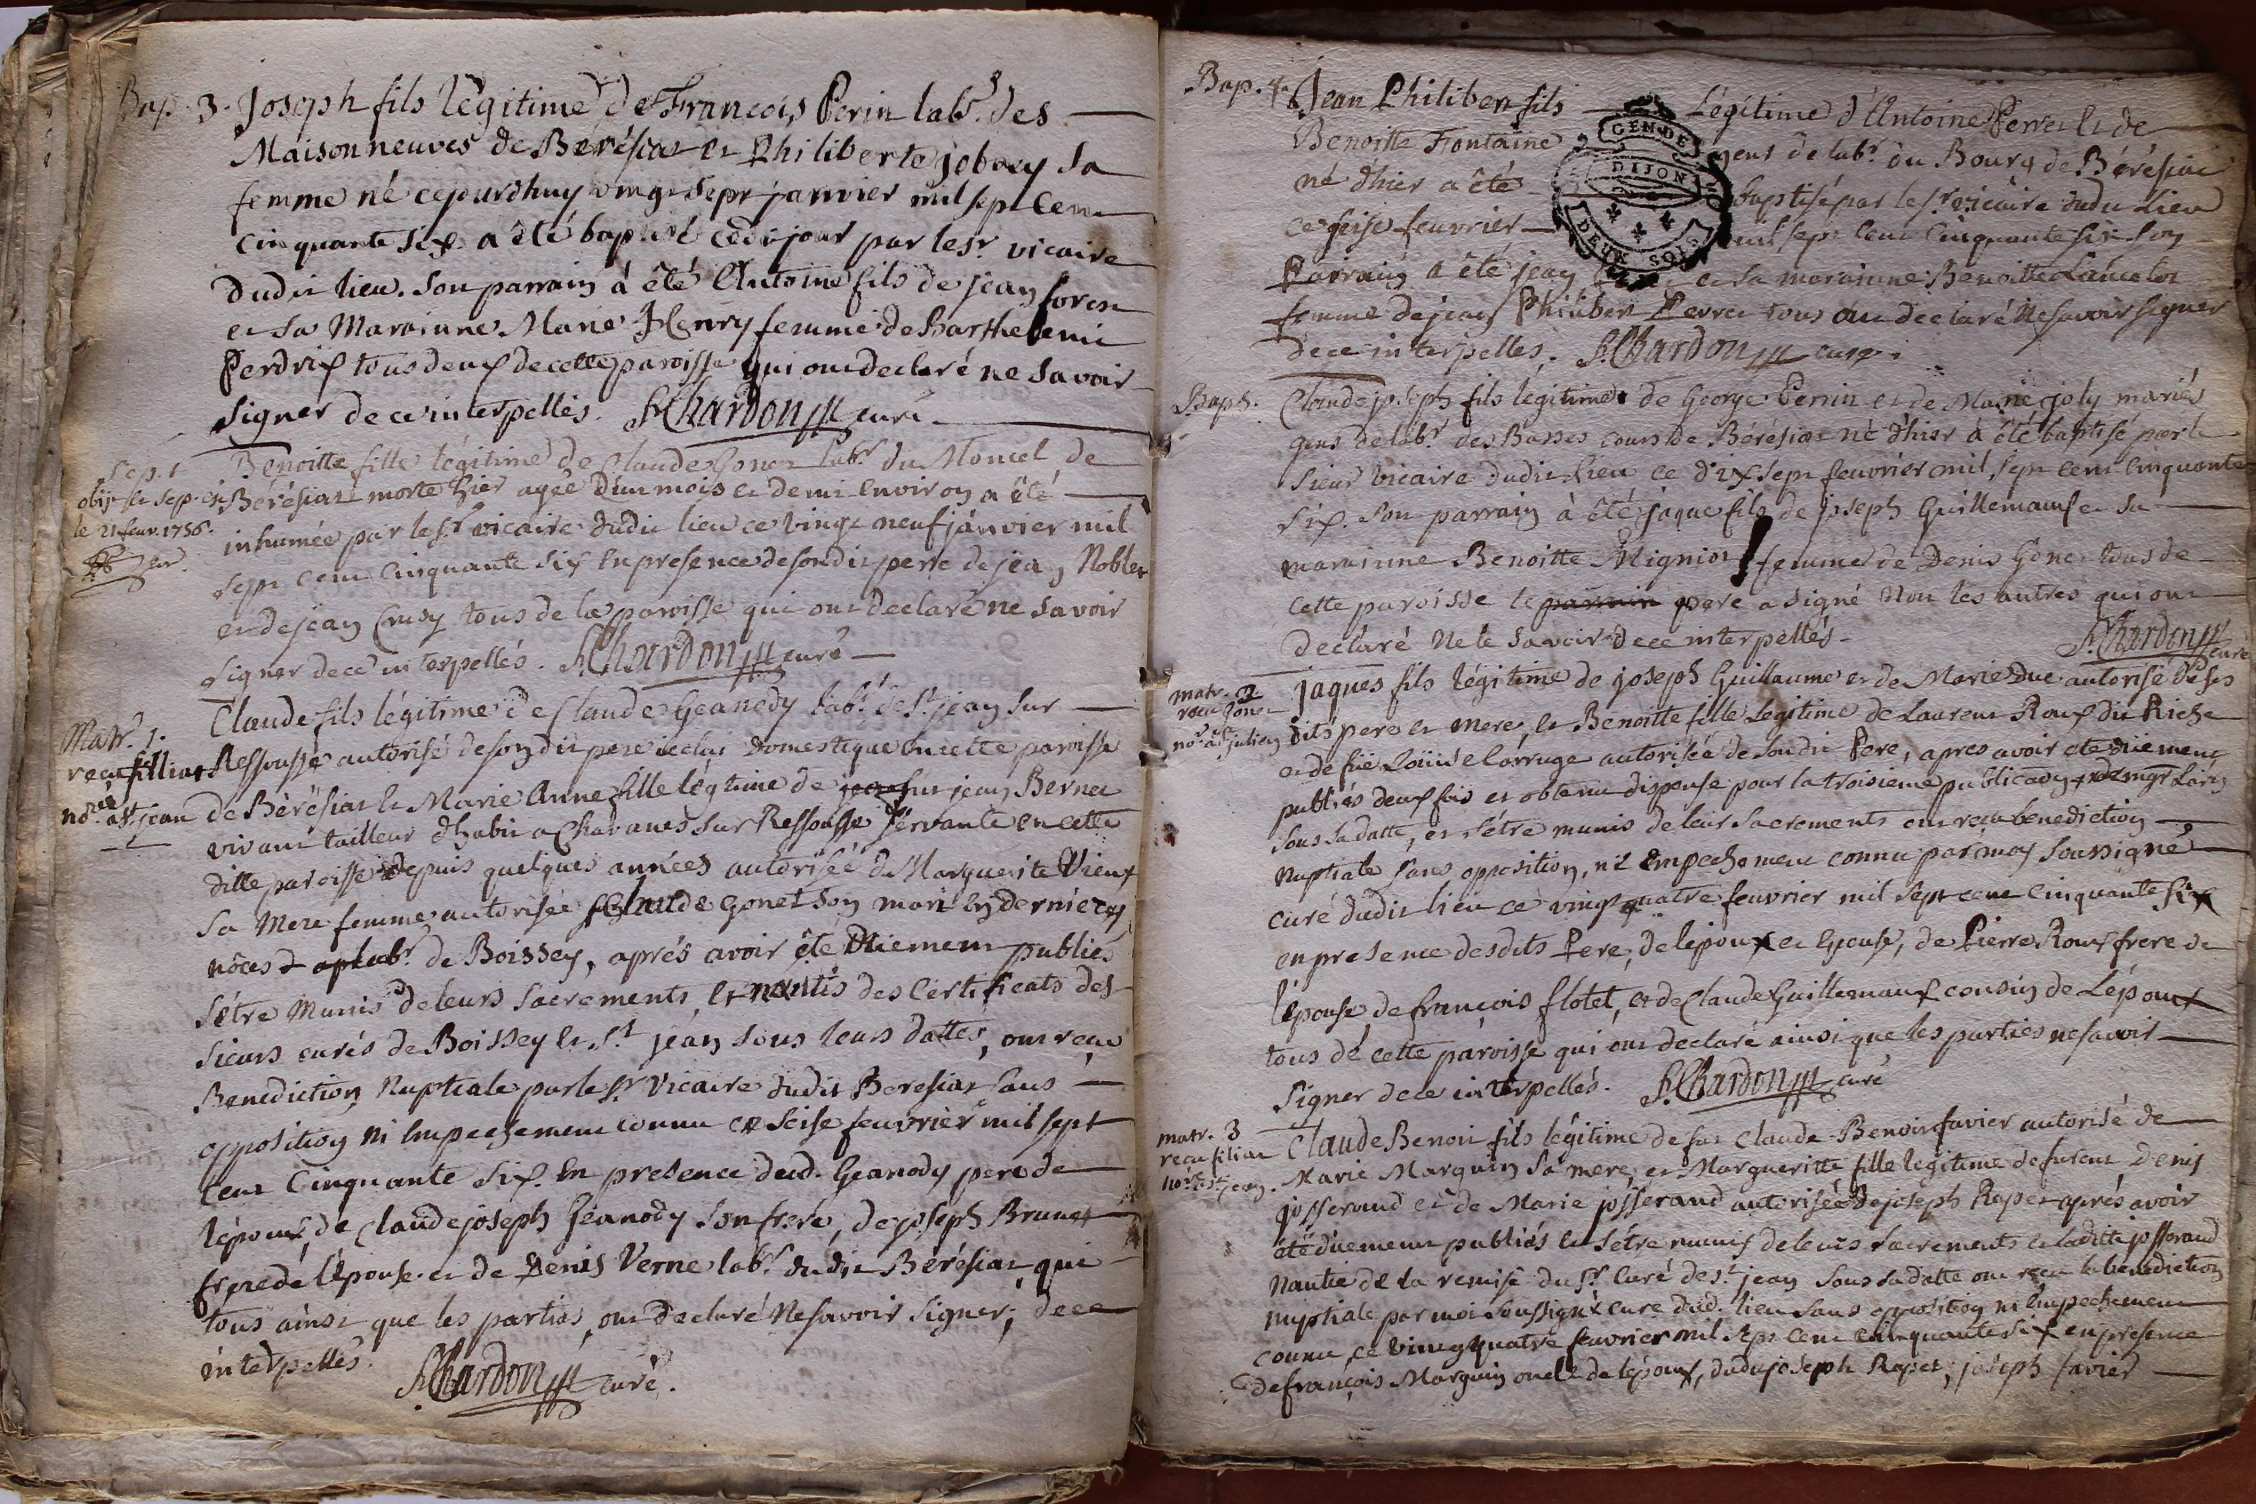 Bap. 3. Joseph fils légitime de François Perin labr. des
Maisonneuves de Bérésiat et Philiberte jobary sa
femme né cejourdhuy vingt sept janvier mil sept cent
cinquante six a été baptisé cedit jour par le sr. vicaire
dudit lieu. son parrain à été Antoine fils de jean forest
et sa Marainne Marie Henry femme de Barthelemi
Perdrix tous deux de cette paroisse qui ont declaré ne savoir
signer de ce interpellés. Chardon curé
Sep. 1
obijt et sep. est
le 21 feur. 1756.
cur.
Benoitte fille légitime de Claude Gonet labr. du Moncel de
Bérésiat morte hier agée d'un mois et demi environ a été
inhumée par le sr. vicaire dudit lieu ce vingt neuf janvier mil
sept cent cinquante six en presence de sondit pere de jean Noblet
et de jean Cruzy tous de la paroisse qui ont declaré ne savoir
signer de ce interpellés. Chardon curé
Matr. 1.
recu filliat
nore. à St. jean
Claude fils légitime de Claude Geanody labr. de St. jean sur
Ressousse autorisé de sondit pere icelui domestique en cette paroisse
de Bérésiat et Marie Anne fille légtime de jean fut jean Bernet
vivant tailleur dhabit a Chavanes sur Ressousse servante en cette
ditte paroisse depuis quelques années autorisée de Marguerite Vieux
sa Mere femme autorisée Claude Gonet son mari en dernieres
nôces labr. de Boissey, aprés avoir été düement publiés
s'étre munis de leurs sacrements et nantis des certificats des
sieurs curés de Boissey et St. jean sous leurs dattes, ont reçu
Benediction Nuptiale par le sr. Vicaire dudit Beresiat sans
opposition ni empechement connu ce seise feuvrier mil sept
cent cinquante six. En presence dud. Geanody pere de
l'époux, de Claude joseph Geanody son frere, de joseph Brunet
frere de l'épouse et de Denis Verne labr. dudit Bérésiat, qui
tous ainsi que les parties, ont declaré ne savoir signer, de ce
interpellés.
Chardon curé.
Bap. 4. Jean Philibert fils légitime d'Antoine Perret et de
Benoitte Fontaine gens de labr. du Bourg de Bérésiat
né d'hier a été baptisé par le sr. vicaire dudit lieu
ce seise feuvrier mil sept cent cinquante six son
Parrain a été jean et sa marainne Benoitte Lancelot
femme de jean Philibert Perret tous ont declaré ne savoir signer
de ce interpellés. Chardon curé
GEN. DE
DIJON
DEUX SOLS
Bapt.
Claude joseph fils légitime de George Perrin et de Marie joly mariés
gens de labr. des Basses cours de Bérésiat né d'hier à été baptisé par le
sieur vicaire dudit lieu ce dix sept feuvrier mil sept cent cinquante
six. son parrain à été jaque fils de joseph Guillemaux et sa
marainne Benoitte Migniot femme de Denis Gonet tous de
cette paroisse le parrain pere a signé non les autres qui ont
declaré ne le savoir de ce interpellés.
Chardon curé
matr. 2
recu Gonet
nore. à St. julien
jaques fils légitime de joseph Guillaume et de Marie Duc autorisé de ses
dits pere et mere, et Benoitte fille legitime de Laurent Roux dit Riche
et de füe autorisée de sondit Pere, apres avoir été düement
publiés deux fois et obtenu dispense pour la troisieme publicaon
sous sa datte, et s'étre munis de leur sacrements ont reçu benediction
nuptiale sans opposition, ni empechement connu par moy soussigné
curé dudit lieu ce vingt quatre feuvrier mil sept cent cinquante six
en presence desdits Pere, de lépoux et epouse, de Pierre Roux frere de
l'épouse de françois flotet, et de Claude Guillemaux cousin de L'époux
tous de cette paroisse qui ont declaré ainsi que les parties ne savoir
signer de ce interpellés. Chardon curé
matr. 3
recu filiat
nore. à St. jean.
Claude Benoit fils légitime de fut Claude Benoit favier autorisé de
Marie Marguin sa mere, et Margueritte fille legitime de furent Denis
josserand et de Marie josserand autorisée de joseph Rapet aprés avoir
été düement publiés et s'étre munis de leurs sacrements et laditte josserand
nantie de la remise du sr. Curé de St. jean sous sa datte ont reçu la benediction
nuptiale par moi soussigné curé dud. lieu sans opposition ni empechement
connu ce vingt quatre feuvrier mil sept cent cinquante six en presence
de françois Marguin oncle de lépoux, dudit joseph Rapet, joseph favier